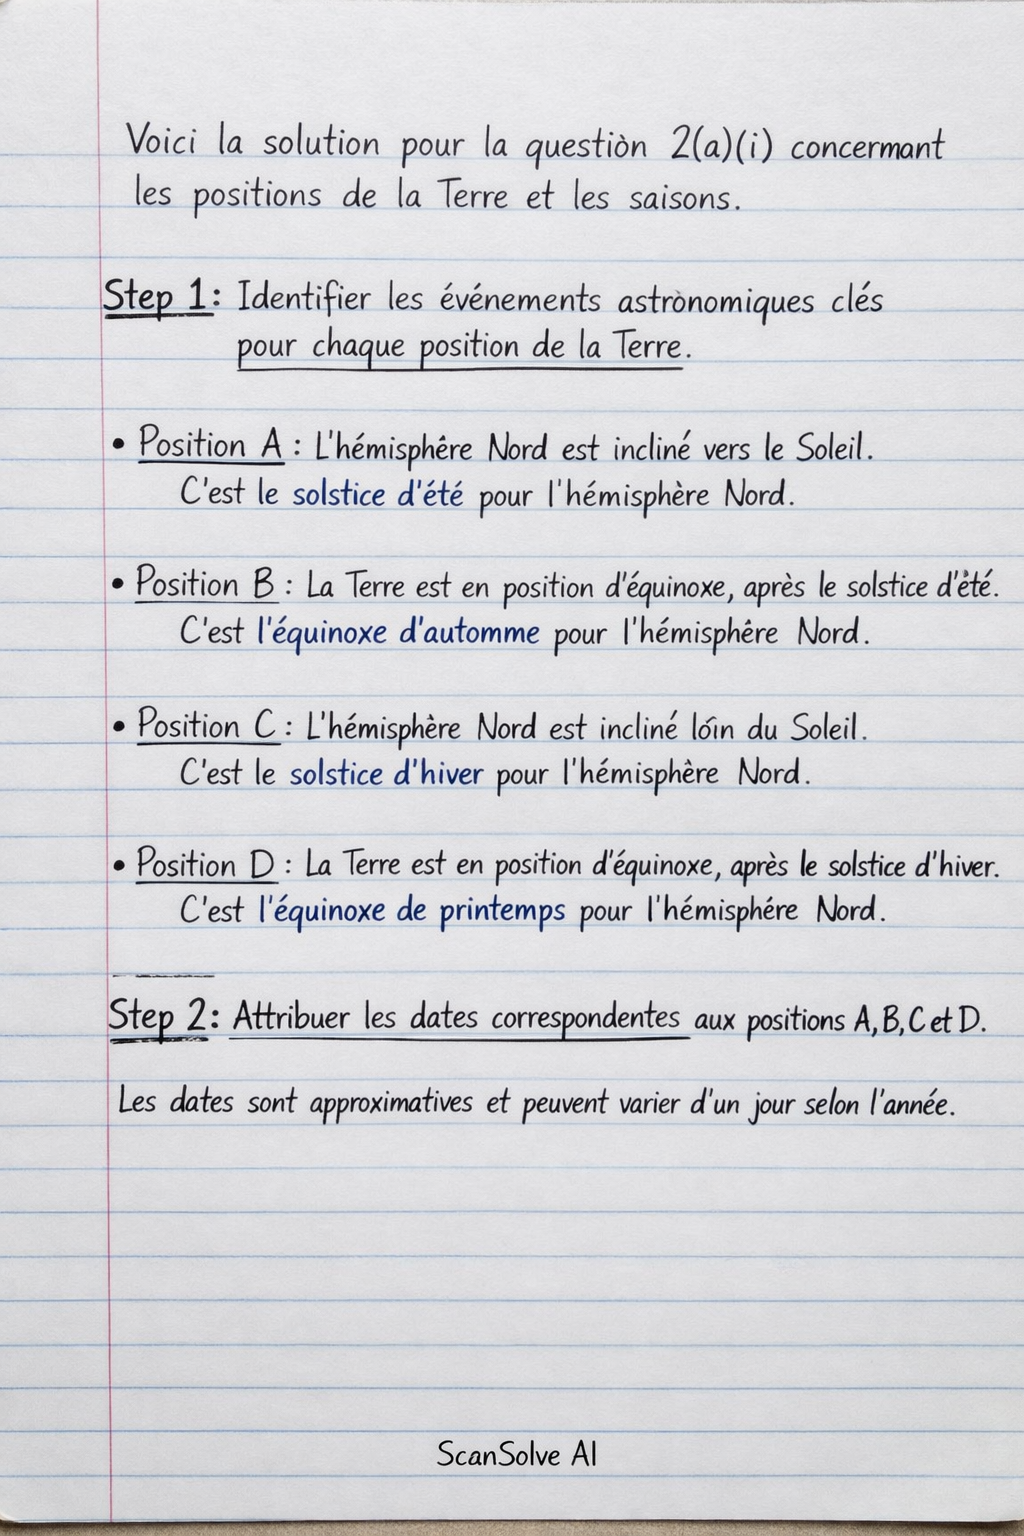 Voici la solution pour la questiòn 2(a)(i) concermant
les positions de la Terre et les saisons.
Step 1: Identifier les événements astrònomiques clés
pour chaque position de la Terre.
• Position A : L'hémisphêre Nord est incliné vers le Soleil.
C'est le solstice d'été pour l'hémisphère Nord.
• Position B : La Terre est en position d'équinoxe, après le solstice d'été.
C'est l'équinoxe d'automme pour l'hémisphêre Nord.
• Position C : L'hémisphère Nord est incliné lóin du Soleil.
C'est le solstice d'hiver pour l'hémisphère Nord.
• Position D : La Terre est en position d'équinoxe, après le solstice d'hiver.
C'est l'équinoxe de printemps pour l'hémisphére Nord.
Step 2: Attribuer les dates correspondentes aux positions A, B, C et D.
Les dates sont approximatives et peuvent varier d'un jour selon l'année.
ScanSolve AI